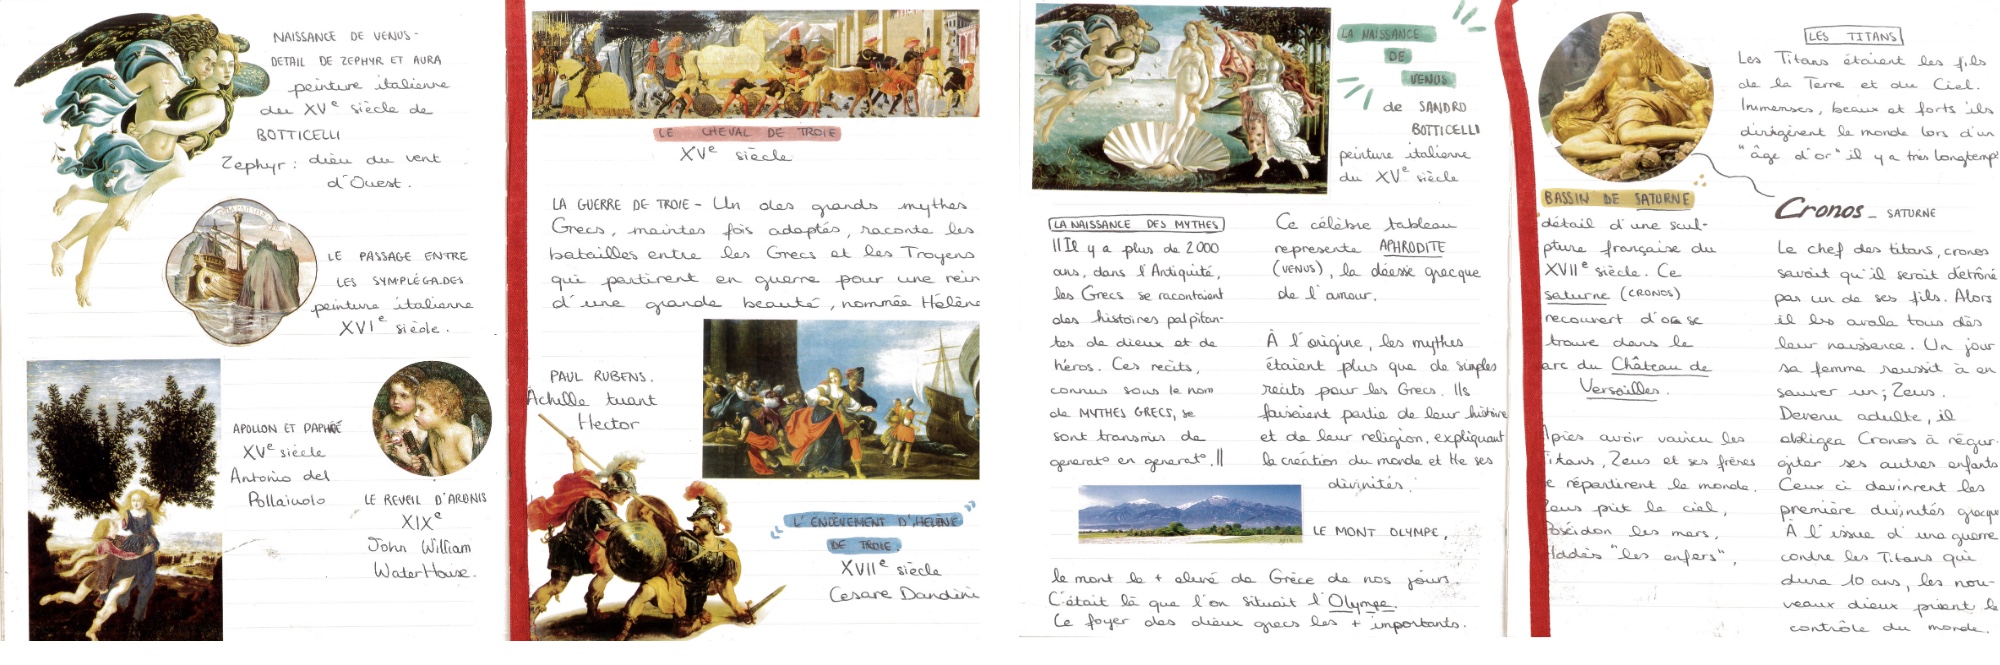 NAISSANCE DE VENUS -
DETAIL DE ZEPHYR ET AURA
peinture italienne
du XVe siècle de
BOTTICELLI
Zephyr : dieu du vent
d'Ouest.
LE PASSAGE ENTRE
LES SYMPLÉGADES
peinture italienne
XVIe siècle.
APOLLON ET DAPHNÉ
XVe siècle
Antonio del
Pollaiuolo
LE REVEIL D'ADONIS
XIXe
John William
WaterHouse.
LE CHEVAL DE TROIE
XVe siècle
LA GUERRE DE TROIE - Un des grands mythes
Grecs, maintes fois adaptés, raconte les
batailles entre les Grecs et les Troyens
qui partirent en guerre pour une rein
d'une grande beauté, nommée Hélène
PAUL RUBENS.
Achille tuant
Hector
"L'ENLÈVEMENT D'HELÈNE
DE TROIE."
XVIIe siècle
Cesare Dandini
LA NAISSANCE
DE
VENUS
de SANDRO
BOTTICELLI
peinture italienne
du XVe siècle
LA NAISSANCE DES MYTHES
"Il y a plus de 2000
ans, dans l'Antiquité,
les Grecs se racontaient
des histoires palpitan-
tes de dieux et de
héros. Ces récits,
connus sous le nom
de MYTHES GRECS, se
sont transmis de
generato en generato."
Ce célèbre tableau
represente APHRODITE
(VENUS), la déesse grecque
de l'amour.
À l'origine, les mythes
étaient plus que de simples
récits pour les Grecs. Ils
faisaient partie de leur histoire
et de leur religion, expliquant
la création du monde et de ses
divinités.
LE MONT OLYMPE,
le mont le + elevé de Grèce de nos jours.
C'était là que l'on situait l'Olympe.
Le foyer des dieux grecs les + importants.
LES TITANS
Les Titans étaient les fils
de la Terre et du Ciel.
Immenses, beaux et forts ils
dirigèrent le monde lors d'un
"âge d'or" il y a très longtemps
BASSIN DE SATURNE
détail d'une scul-
pture française du
XVIIe siècle. Ce
saturne (CRONOS)
recouvert d'or se
trouve dans le
arc du Château de
Versailles.
Après avoir vaincu les
Titans, Zeus et ses frères
se répartirent le monde.
Zeus prit le ciel,
Poséidon les mers,
Haddès "les enfers".
Cronos _ SATURNE
Le chef des titans, cronos
savait qu'il serait détrôné
par un de ses fils. Alors
il les avala tous dès
leur naissance. Un jour
sa femme reussit à en
sauver un ; Zeus.
Devenu adulte, il
obligea Cronos à régur-
giter ses autres enfants
Ceux ci devinrent les
première divinités grecque
À l'issue d'une guerre
contre les Titans qui
dura 10 ans, les nou-
veaux dieux prirent le
contrôle du monde.